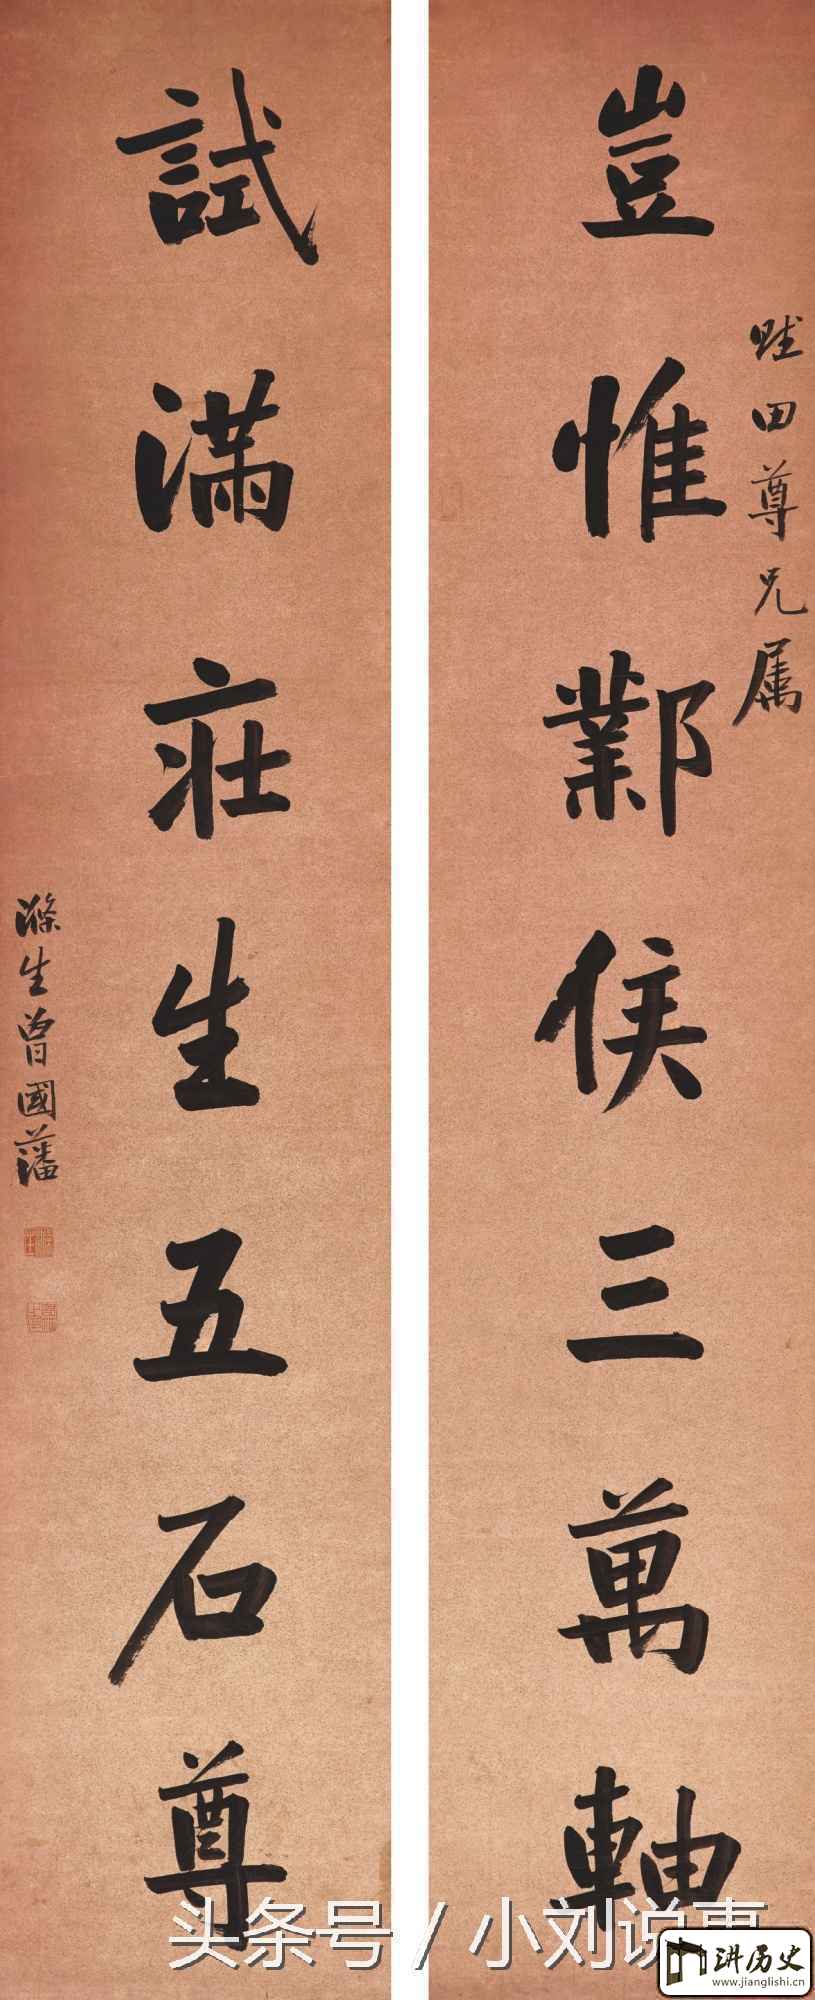 豈惟鄴侯三萬軸
田尊兄属
試滿莊生五石尊
滌生曾國藩
头条号 / 小刘说事
讲历史
www.jianglishi.cn